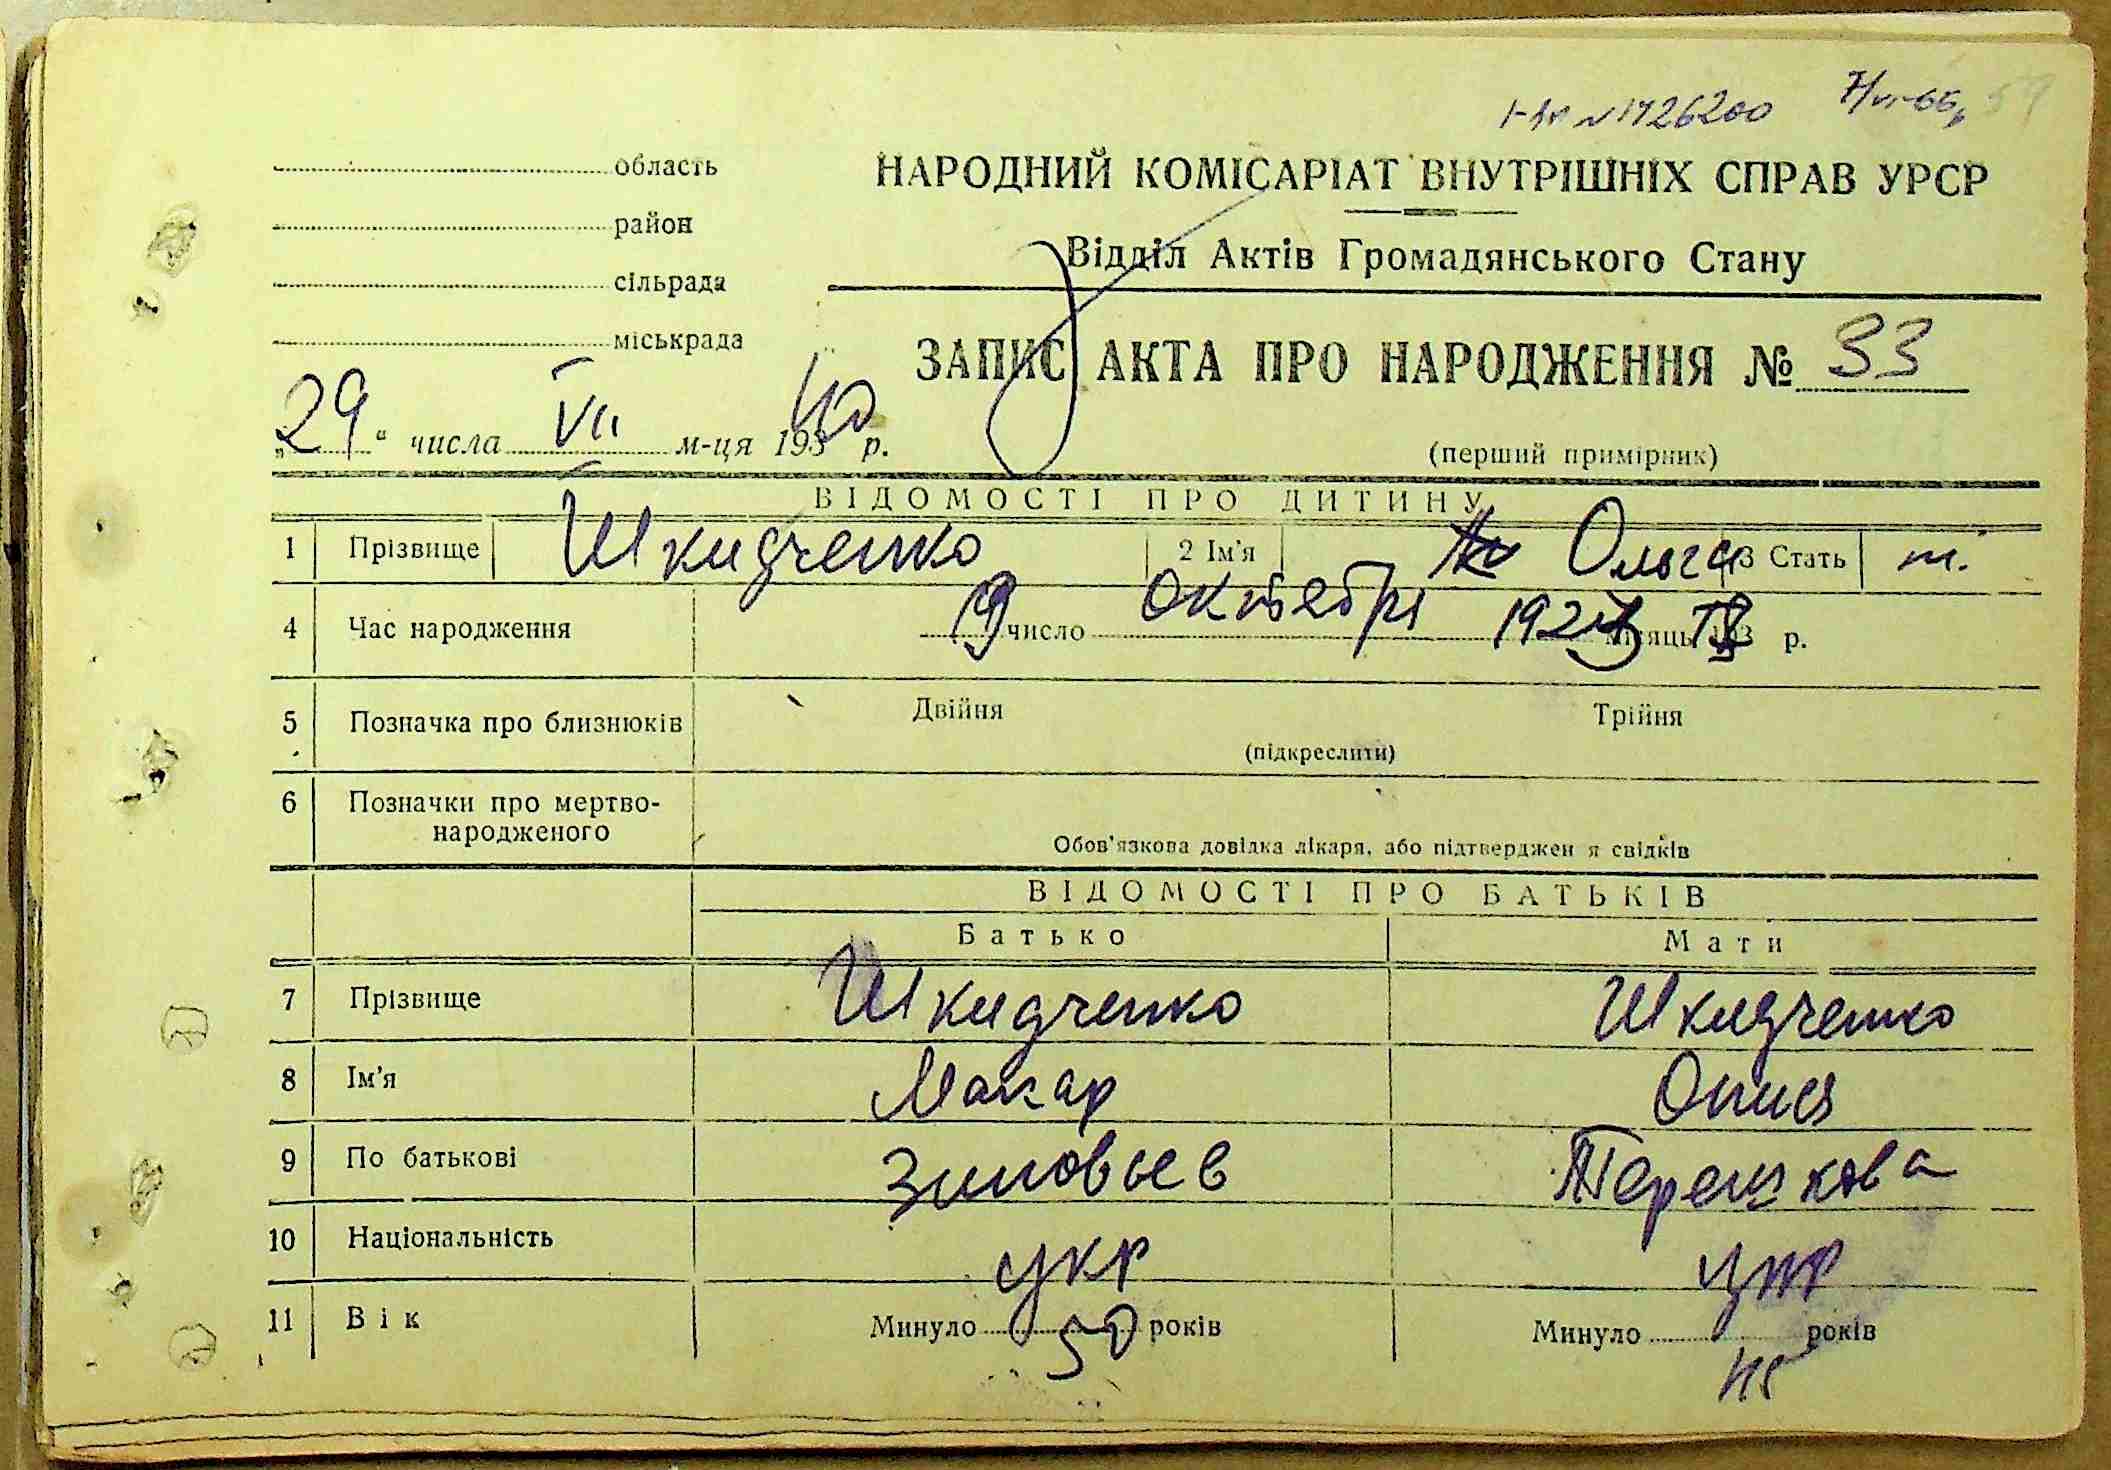 № 1726200 7/VI-65
область НАРОДНИЙ КОМІСАРІАТ ВНУТРІШНІХ СПРАВ УРСР
район
Відділ Актів Громадянського Стану
сільрада
міськрада
ЗАПИС АКТА ПРО НАРОДЖЕННЯ № 33
„29“ числа VII м-ця 193 40 р.
(перший примірник)
ВІДОМОСТІ ПРО ДИТИНУ
1 Прізвище Шкидченко 2 Ім'я Ольга 3 Стать
4 Час народження 9 число октебря місяць 193 р.
5 Позначка про близнюків Двійня Трійня
(підкреслити)
6 Позначки про мертво-
народженого
Обов'язкова довідка лікаря, або підтверджен я свідків
ВІДОМОСТІ ПРО БАТЬКІВ
Батько Мати
7 Прізвище Шкидченко Шкидченко
8 Ім'я Макар Опися
9 По батькові Зиновьев Терешкова
10 Національність укр укр
11 Вік Минуло 50 років Минуло 45 років